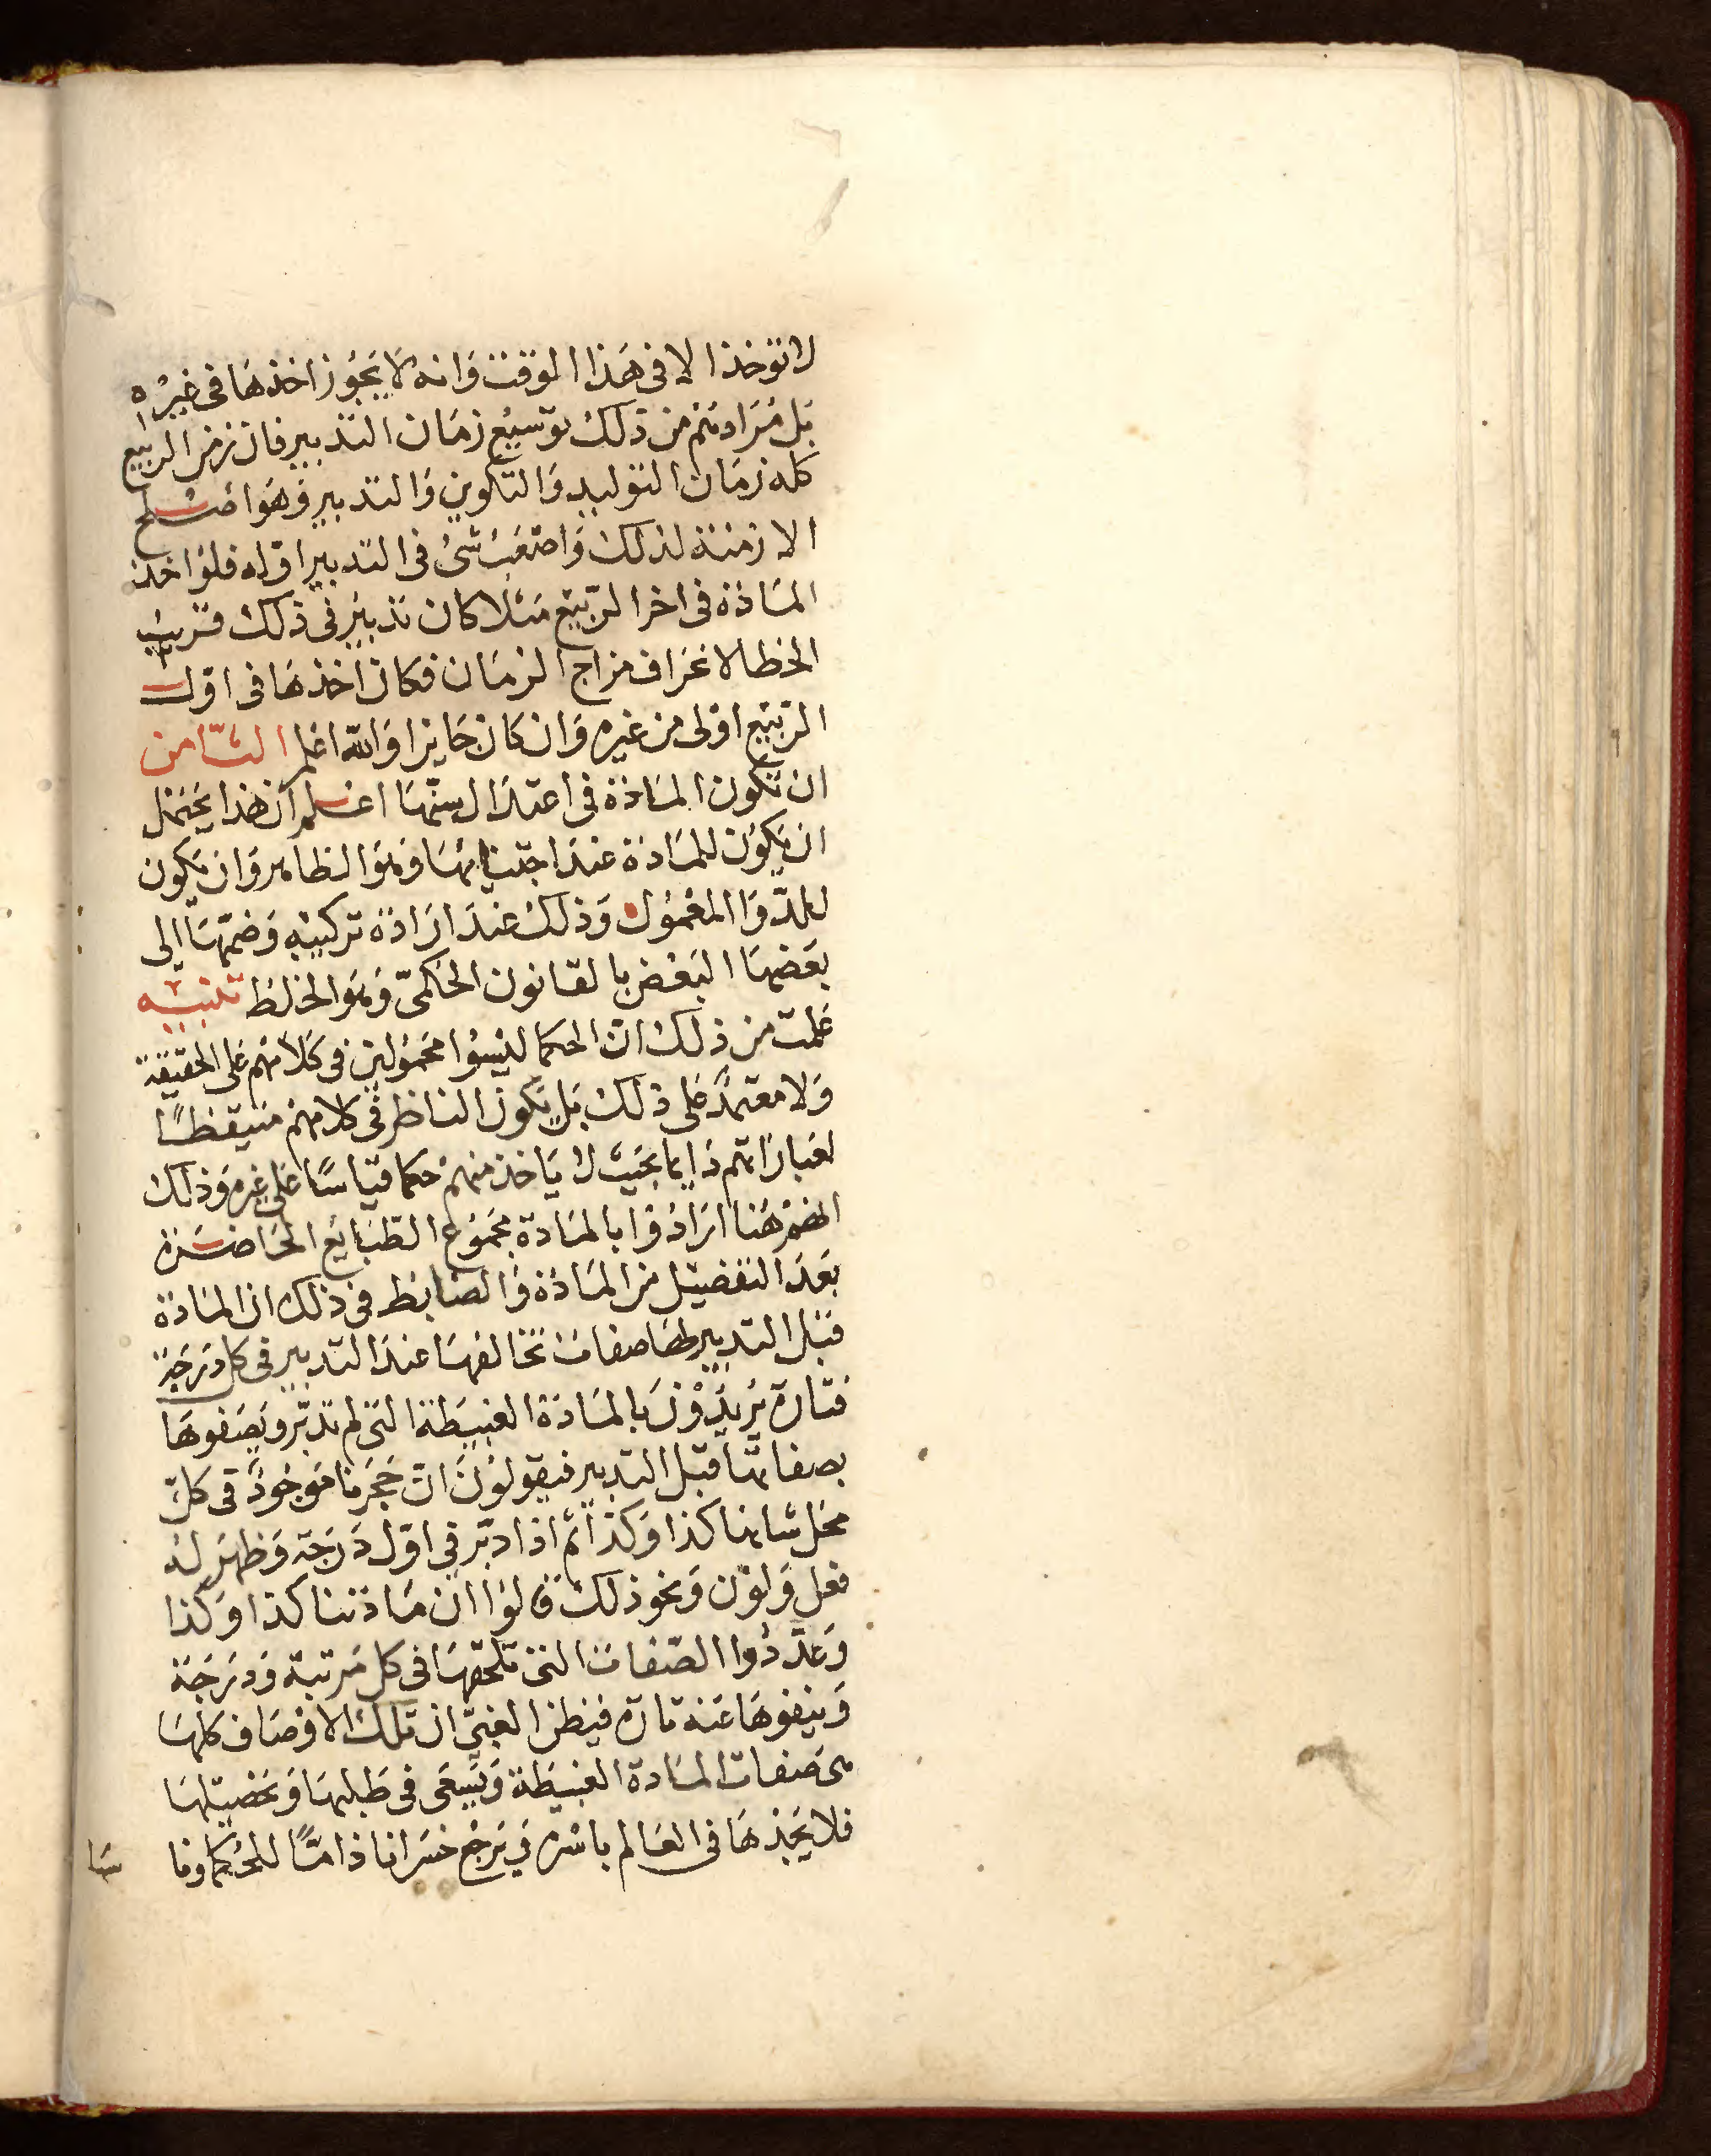 لا توخذ الا فى هَذا الوقت وَانه لا يَجُوز اخذهَا فى غيرُه
بَل مُرَادهُم من ذلك توسيْع زمَان التدبير فان زمن الربيع
كله زمَان التوليد وَالتكوين وَالتدبير وَهوَ اصْلح
الازمنة لذلك وَاصْعَبُ شئ فى التدبير اوّله فلو اخذ
المَادّة فى اخر الرّبيع مَثلا كان تدبيرُ فى ذلك قريب
الخطا لانحَراف مزاج الزمَان فكان اخذهَا فى اوّل
الرّبيع اوْلى من غيره وَان كان جَايزا وَالله اعلم الثّامن
ان تكون المادّة فى اعتدَال سنّهَا اعْلم ان هَذا يحَتمل
ان يكوُن للمَادّة عندَ اجتنائهَا وَهوَ الظاهر وَان يكون
للدّوَا المعْموُل وَذلك عندَ ارَادة تركيبْه وَضمّهَا الى
بَعَضهَا البَعْض بالقانون الحَكمىّ وَهوَ الخلط تنبيْه
عَلمت من ذلك انّ الحكما ليْسوُا محَموُلين فى كَلامهُم عَلى الحَقيْقة
وَلا معتمدٌ عَلى ذلك بَل يكون الناظر فى كلامهم متيقظًا
لعبَارَاتهم دَايما بحَيث لا يَاخذ منهم حكما قيَاسًا عَلى غيره وَذلك
انهُم هُنا ارَادُوا بالمَادّة مجَموُع الطبَايْع الحَاضرَة
بَعدَ التفصيْل من المَادّة وَالضابط فى ذلك ان المَادّة
قبَل التدبير لهَا صفات تخَالفهَا عندَ التدبير فى كل دَرَجَة
فتارَة يُريْدوْنَ بالمَادّة الغبيَطة التى لم تدبّر وَيصَفوهَا
بصفاتهَا قبَل التدبير فيقولوُنَ انّ حَجَرنا مَوجُودٌ فى كلّ
محَل شانها كذا وَكذا ثم اذا دبّر فى اوّل دَرَجَة وَظهرَ لهُ
فعل وَلوْن وَنحو ذلك قالوُا ان مَادّتنا كذا وَكذا
وَعدّدُوا الصّفات التى تلحَقهَا فى كل مَرتبَة وَدرَجَة
وَينفوهَا عَنهَ تارَة فيَظن الغبىّ ان تلك الاوْصَاف كلهَا
هى صَفات المَادة الغبيَطة وَيسَعَى فى طَلبهَا وَتحَصيْلهَا
فلا يَجدهَا فى العَالم باسْره فيَرْجعْ خسَرانا ذامًّا للحُكما وَما
سَا